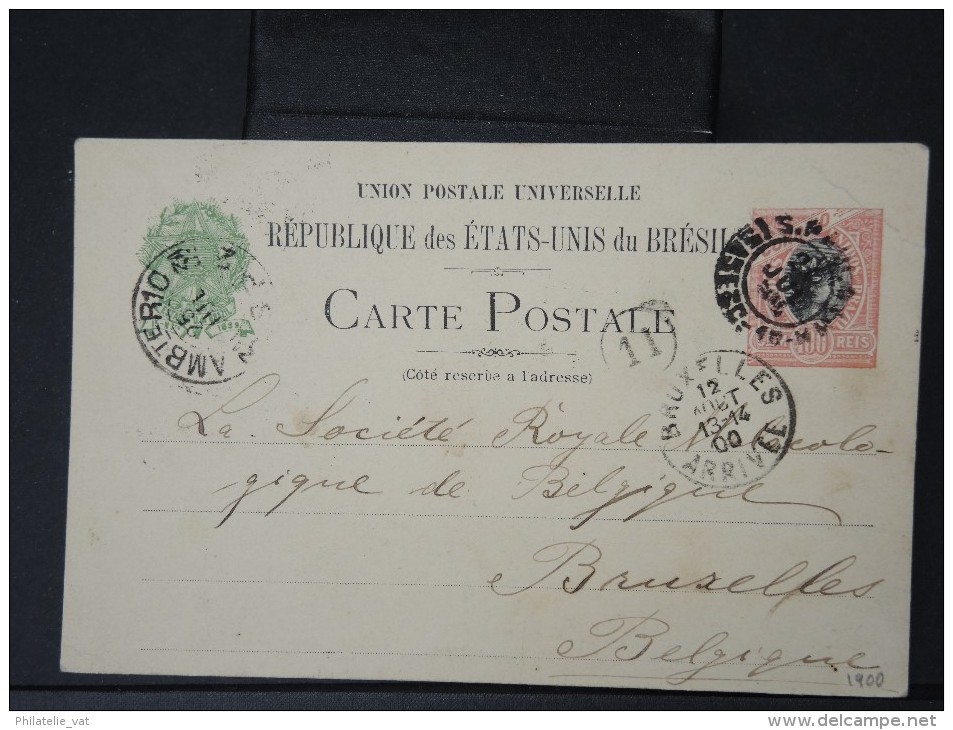 UNION POSTALE UNIVERSELLE
RÉPUBLIQUE des ÉTATS-UNIS du BRÉSIL
CARTE POSTALE
(Côté reservé a l'adresse)
100 REIS
11
AMBTER10
BRUXELLES
12
AOUT
13-14
00
ARRIV
La Société Royale Malacolo-
gique de Belgique
Bruxelles
Belgique
1900
Philatelie_vat
delcampe.net